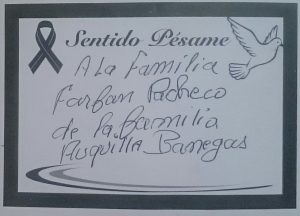 Sentido Pésame
A La Familia
Farfan Pacheco
de la familia
Auquilla Banegas